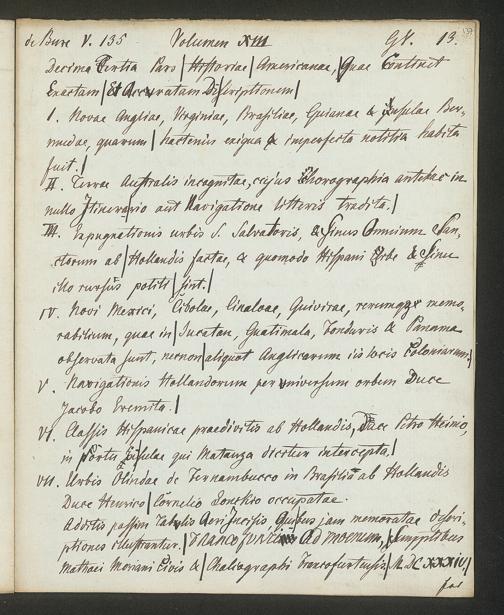 de Bure V. 135 Volumen XIII Gr. 13.
Decima Tertia Pars | Historiae | Americanae, Quae Continet
Exactam | Et Accuratam Descriptionem |
I. Novae Angliae, Virginiae, Brasiliae, Guianae & Insulae Ber-
mudae, quarum | hactenus exigua & imperfecta notitia habita
fuit. |
II. Terrae Australis incognitae, cujus Chorographia antehac in
nullo Itinerario aut Navigatione litteris tradita. |
III. Expugnationis urbis S. Salvatoris, & Sinus Omnium Sanc-
torum ab | Hollandis factae, & quomodo Hispani Urbe & Sinu
illo rursus potiti | sint. |
IV. Novi Mexici, Cibolae, Cinaloae, Quivirae, rerumque memo-
rabilium, quae in | Jucatan, Guatimala, Fonduris & Panama
observata sunt, necnon | aliquot Anglicarum iis locis Coloniarum. |
V. Navigationis Hollandorum per universum orbem Duce
Jacobo Eremita. |
VI. Classis Hispanicae praedivitis ab Hollandis, Duce Petro Heinio,
in Portu Insulae qui Matanza dicitur intercepta. |
VII. Urbis Olindae de Fernambucco in Brasilia ab Hollandis
Duce Henrico | Cornelio Lonckio occupatae.
Additis passim Tabulis Aeri Incisis Quibus jam memoratae descri-
ptiones illustrantur. | Francofurti Ad Moenum, | Sumptibus
Mathaei Meriani Civis & | Chalcographi Francofurtensis | M.DCXXXIV. |